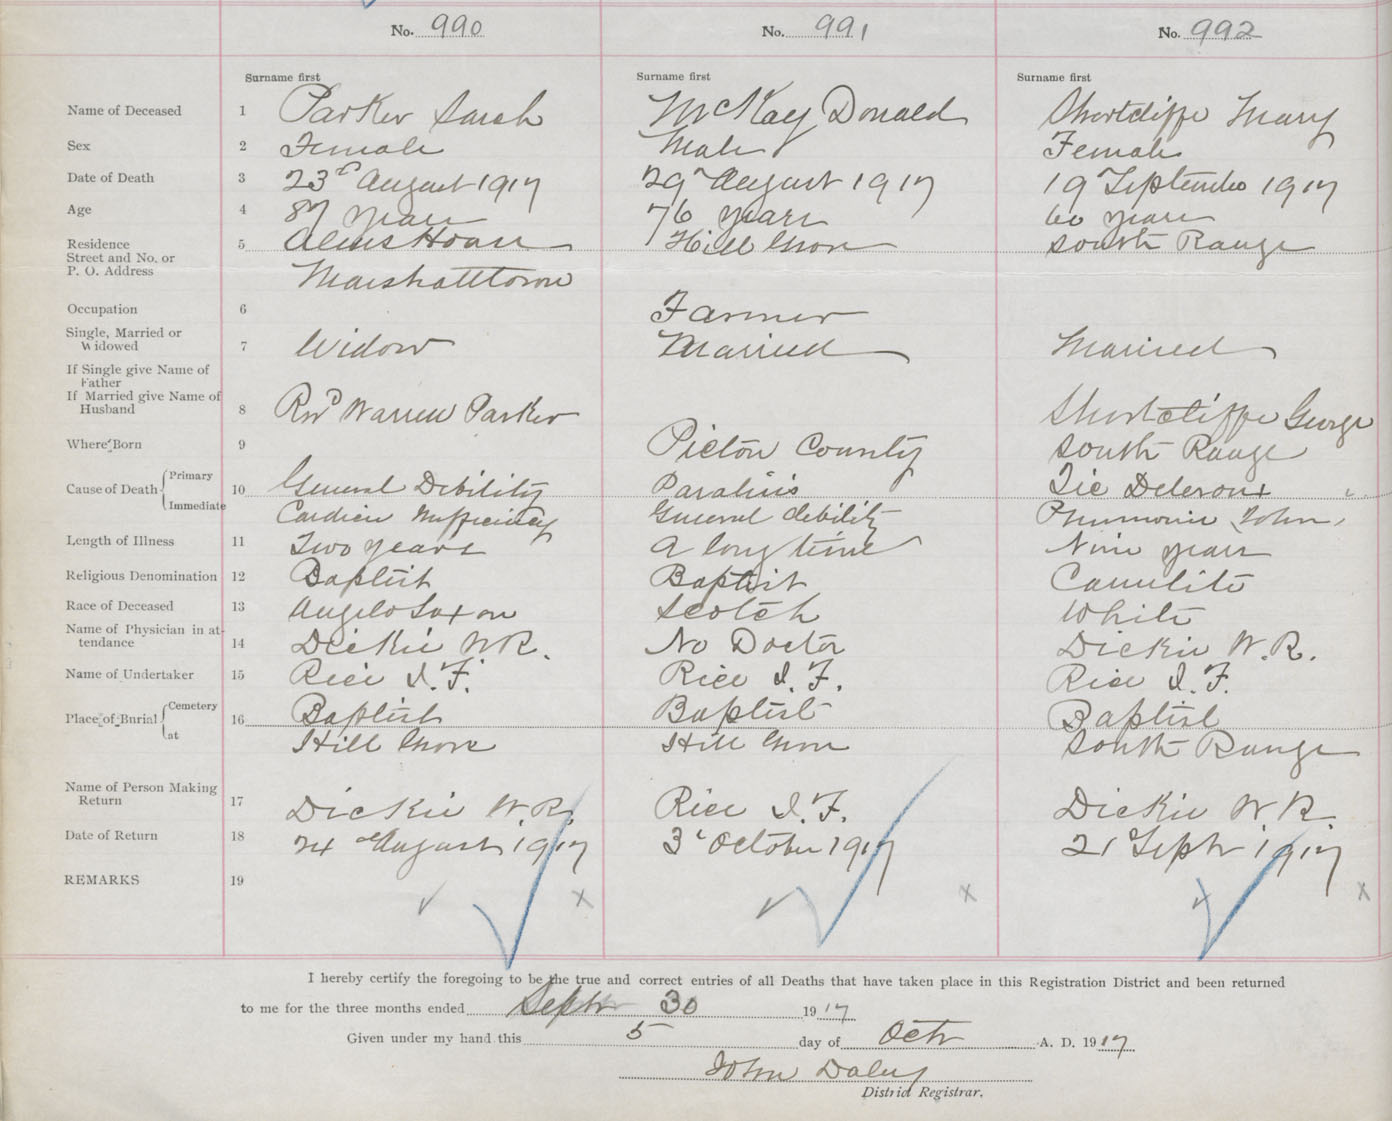 No. 990 No. 991 No. 992
Surname first Surname first Surname first
Name of Deceased 1 Parker Sarah McKay Donald Shortcliffe Mary
Sex 2 Female Male Female
Date of Death 3 23d August 1917 29 August 1917 19 September 1917
Age 4 87 years 76 years 60 years
Residence 5 Alms House Hill Grove South Range
Street and No. or
P. O. Address Marshalltown
Occupation 6 Farmer
Single, Married or
Widowed 7 Widow Married Married
If Single give Name of
Father
If Married give Name of
Husband 8 Revd Warren Parker Shortcliffe George
Where Born 9 Pictou County South Range
Cause of Death Primary 10 General Debility Paralisis Tic Deleroux
Immediate Cardiac General debility
Length of Illness 11 Two years A long time Nine years
Religious Denomination 12 Baptist Baptist
Race of Deceased 13 Anglo Saxon Scotch White
Name of Physician in at-
tendance 14 Dickie W R. No Doctor Dickie W. R.
Name of Undertaker 15 Rice I. F. Rice I. F. Rice I. F.
Place of Burial Cemetery 16 Baptist Baptist Baptist
at Hill Grove Hill Grove South Range
Name of Person Making
Return 17 Dickie W. R. Rice I. F. Dickie W. R.
Date of Return 18 24 August 1917 3 October 1917 21 Septr 1917
REMARKS 19
I hereby certify the foregoing to be the true and correct entries of all Deaths that have taken place in this Registration District and been returned
to me for the three months ended Septr 30 1917
Given under my hand this 5 day of Octr A. D. 1917
John Daley
District Registrar.